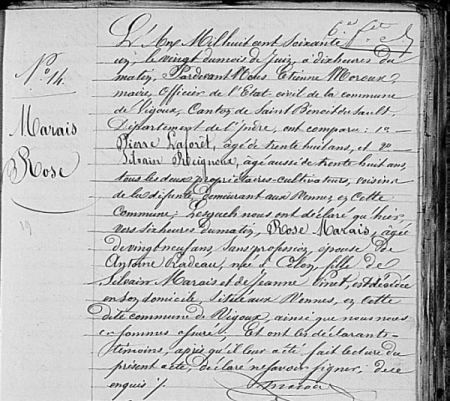 N.º 14.
Marais
Rose
19
L'An Mil huit cent soixante
un, le vingt du mois de Juin, à dix heures du
matin, Pardevant Nous Etienne Moreux
maire, Officier de l'Etat civil de la commune
de Vigoux, Canton de Saint Benoit du Sault,
Département de l'Indre, ont comparu: 1º
Pierre Laforêt, âgé de trente huit ans, et 2º
Silvain âgé aussi de trente huit ans,
tous les deux propriétaires-cultivateurs, voisins
de la défunte, demeurant aux Vennes, en Cette
Commune; Lesquels nous ont déclaré qu'hier,
vers six heures du matin, Rose Marais, âgée
de vingt neuf ans, sans profession, épouse de
Antoine Radeau, née à Celon, fille de
Silvain Marais et de Jeanne Pinet, est décédée
en son domicile, situé aux Vennes, en Cette
dite commune de Vigoux, ainsi que nous nous
en sommes assuré. Et ont les déclarants-
témoins, après qu'il leur a été fait lecture du
présent acte, déclaré ne savoir signer, de ce
enquis /.